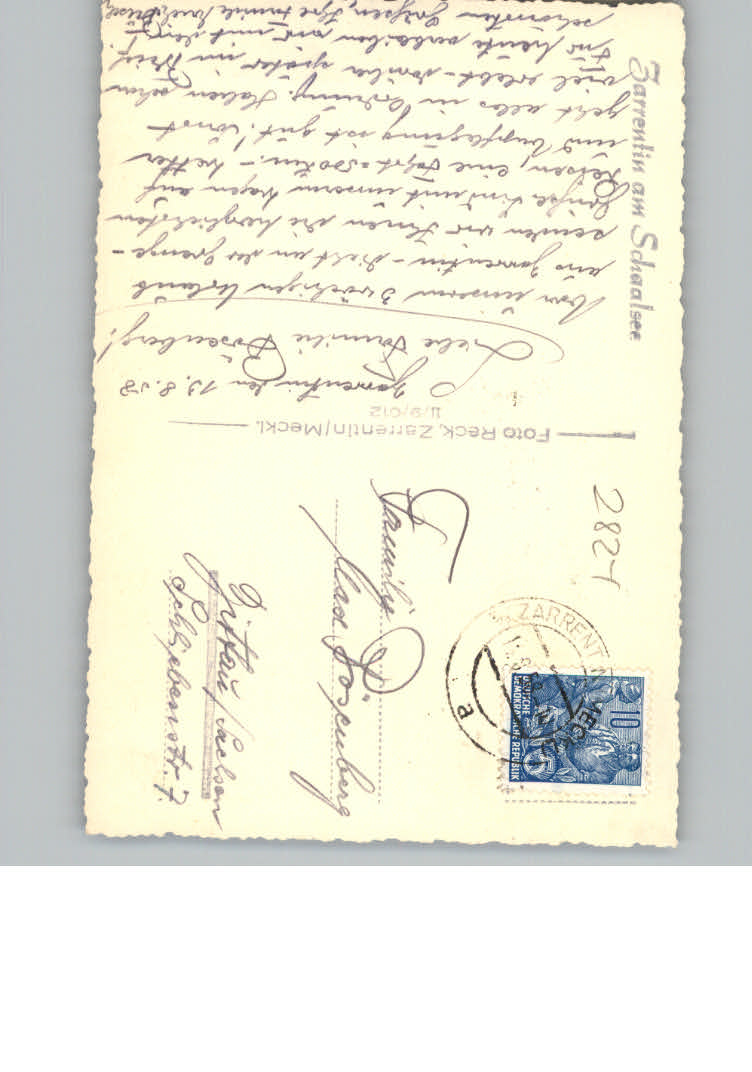 Zarrentin am Schaalsee
Zarrentin den 13.8.58
Liebe Familie Rosenberg!
Von unserem 3 wöchigen Urlaub
aus Zarrentin - dicht an der Grenze -
senden wir Ihnen die herzlichsten
Grüße. Sind mit unserem Wagen auf
Reisen, eine Fahrt = 500 km. - Wetter
und Verpflegung ist gut! Sonst
geht alles in Ordnung. Haben schon
viel erlebt - darüber später im Brief.
Für heute verbleiben wir mit den
schönsten Grüßen, Ihre Familie
Foto Reck, Zarrentin/Meckl.
II/9/012
2821
ZARRENTIN MECKL
10
DEUTSCHE
DEMOKRATISCHE REPUBLIK
Familie
Max Rosenberg
Zittau/Sachsen
Schliebenstr. 7.